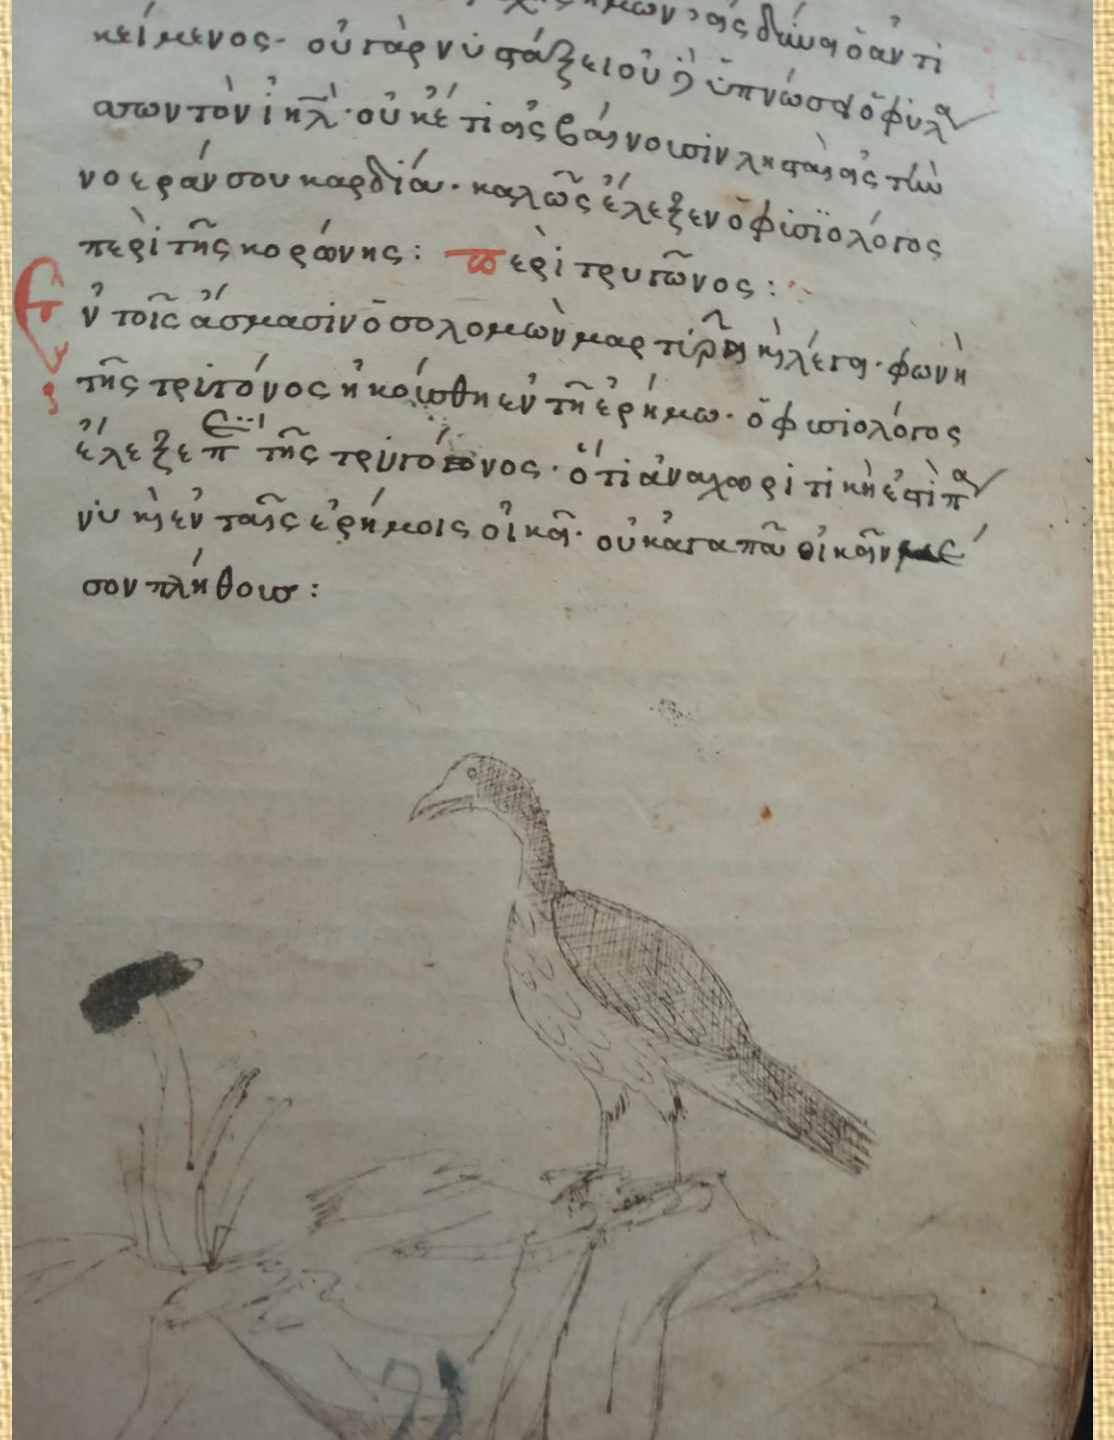 κείμενος· οὐ γὰρ νυστάξει οὐδ ὑπνώσει ὁ φυλ
αττων τὸν ἰηλ· οὐκέτι εἰς βαίνουσιν λησταὶ εἰς τὴν
νοεράν σου καρδίαν· καλῶς ἔλεξεν ὁ φισϊολόγος
περὶ τῆς κορώνης: περὶ τρυγῶνος:
Ἐν τοῖς ἄσμασιν ὁ σολομὼν μαρτυρεῖ κὶ λέγει· φωνὴ
τῆς τριγόνος ἠκούσθη ἐν τῆ ἐρήμω· ὁ φισιολόγος
ἔλεξε π τῆς τρυγόνος· ὅτι ἀναχωριτικὴ ἐστὶ π
νυ κὶ ἐν ταῖς ἐρήμοις οἰκεῖ· οὐκ αγαπᾶ οἰκεῖν μέ
σον πλήθους: